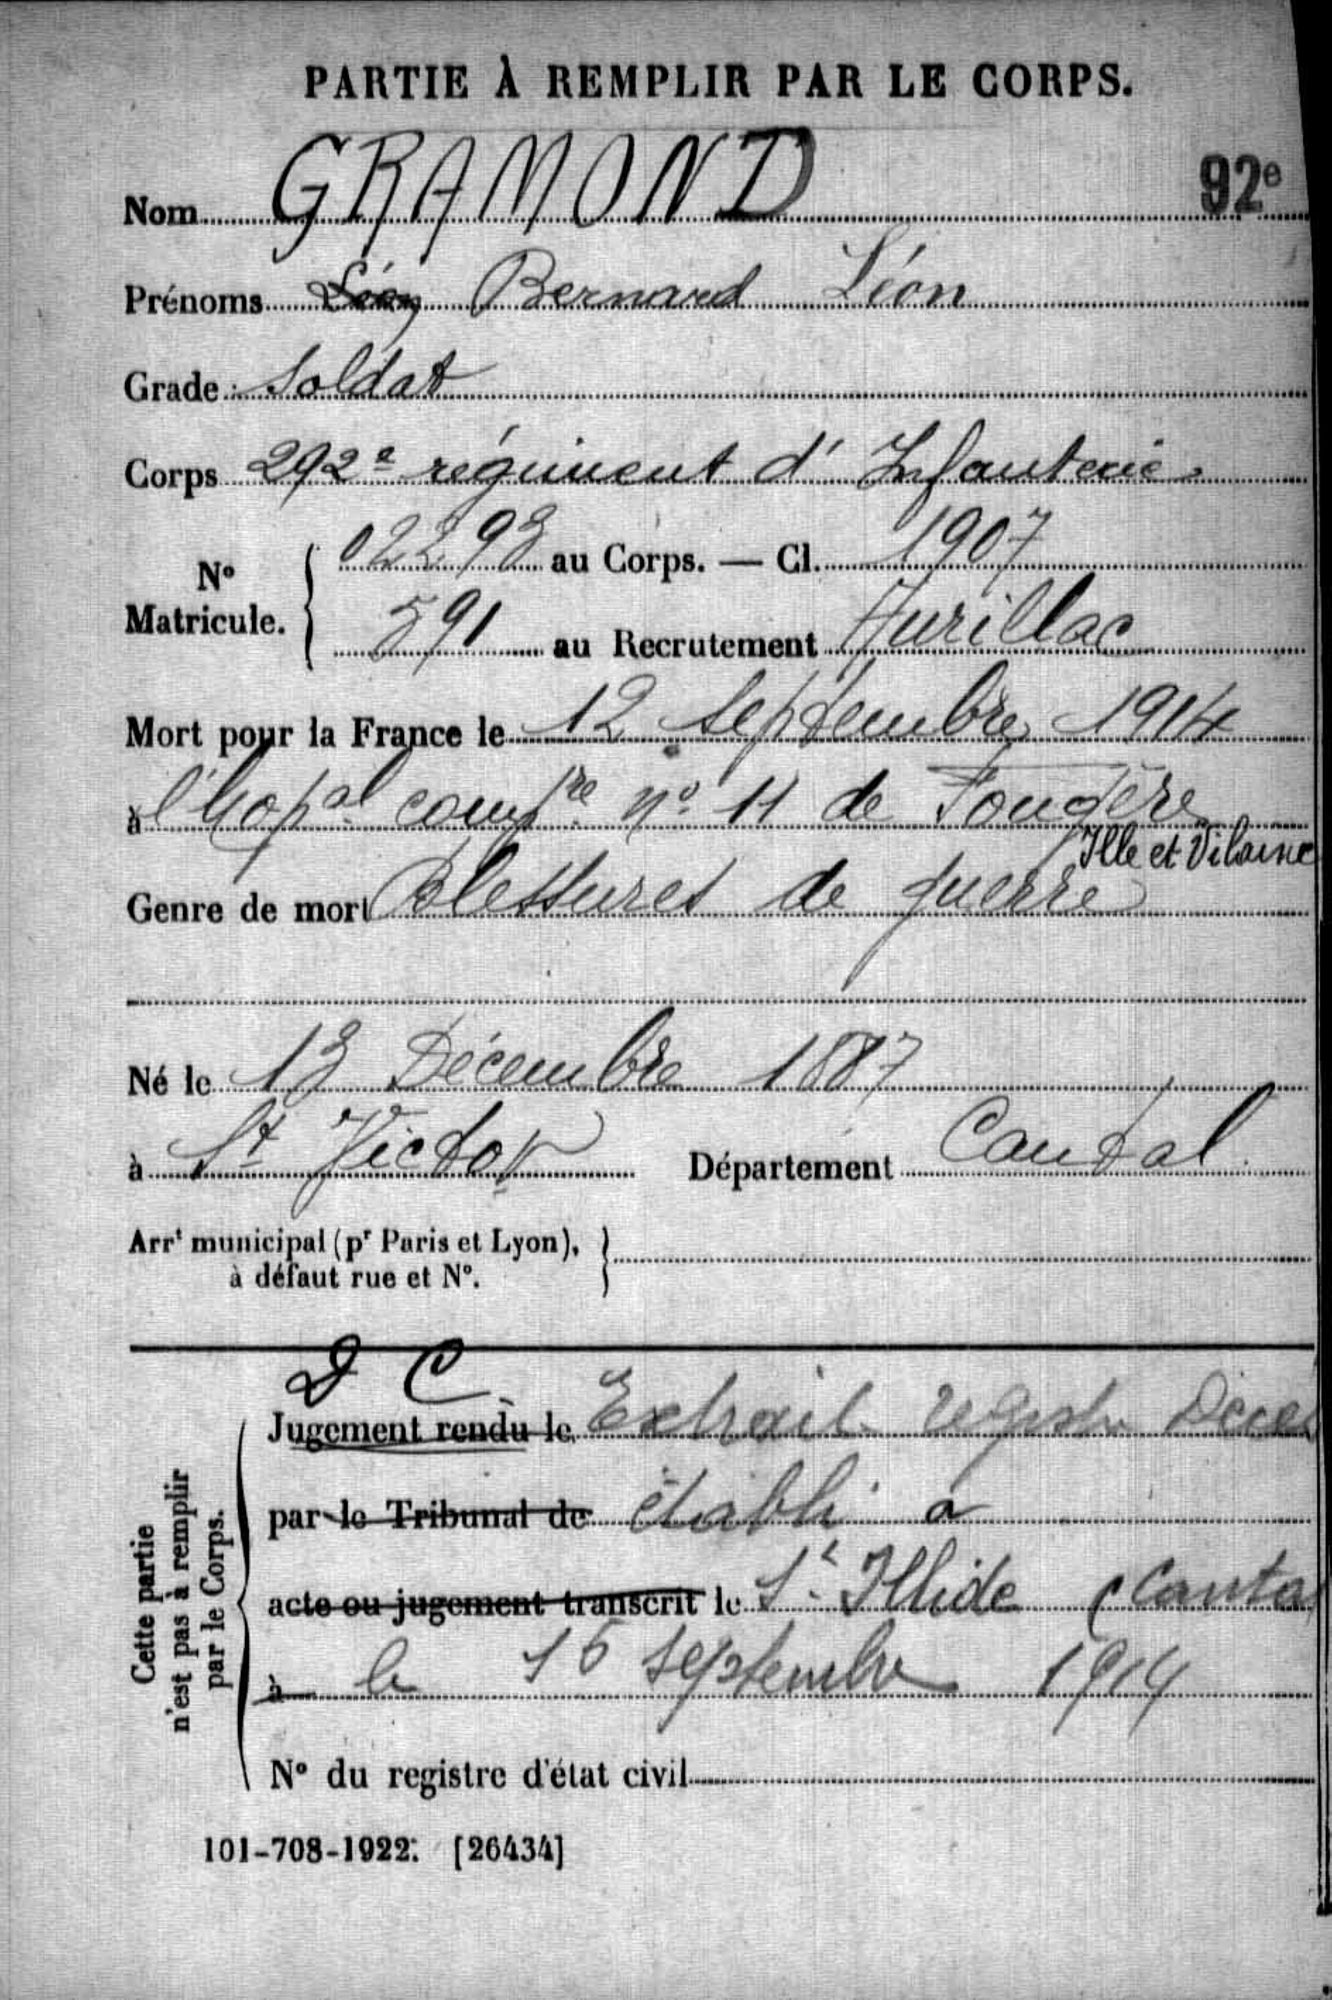 PARTIE À REMPLIR PAR LE CORPS.
Nom GRAMOND 92e
Prénoms Léon Bernard Léon
Grade : Soldat
Corps 292e régiment d'Infanterie
No Matricule. 02293 au Corps. — Cl. 1907
591 au Recrutement Aurillac
Mort pour la France le 12 Septembre 1914
à l'Hopal compre no 11 de Fougère
Ille et Vilaine
Genre de mort Blessures de guerre
Né le 13 Décembre 1887
à St Victor Département Cantal
Arrt municipal (pr Paris et Lyon),
à défaut rue et No.
D C
Jugement rendu le Extrait registre Décès
par le Tribunal de établi a
acte ou jugement transcrit le St Illide (Canta
à le 15 septembre 1914
No du registre d'état civil
Cette partie
n'est pas à remplir
par le Corps.
101-708-1922. [26434]